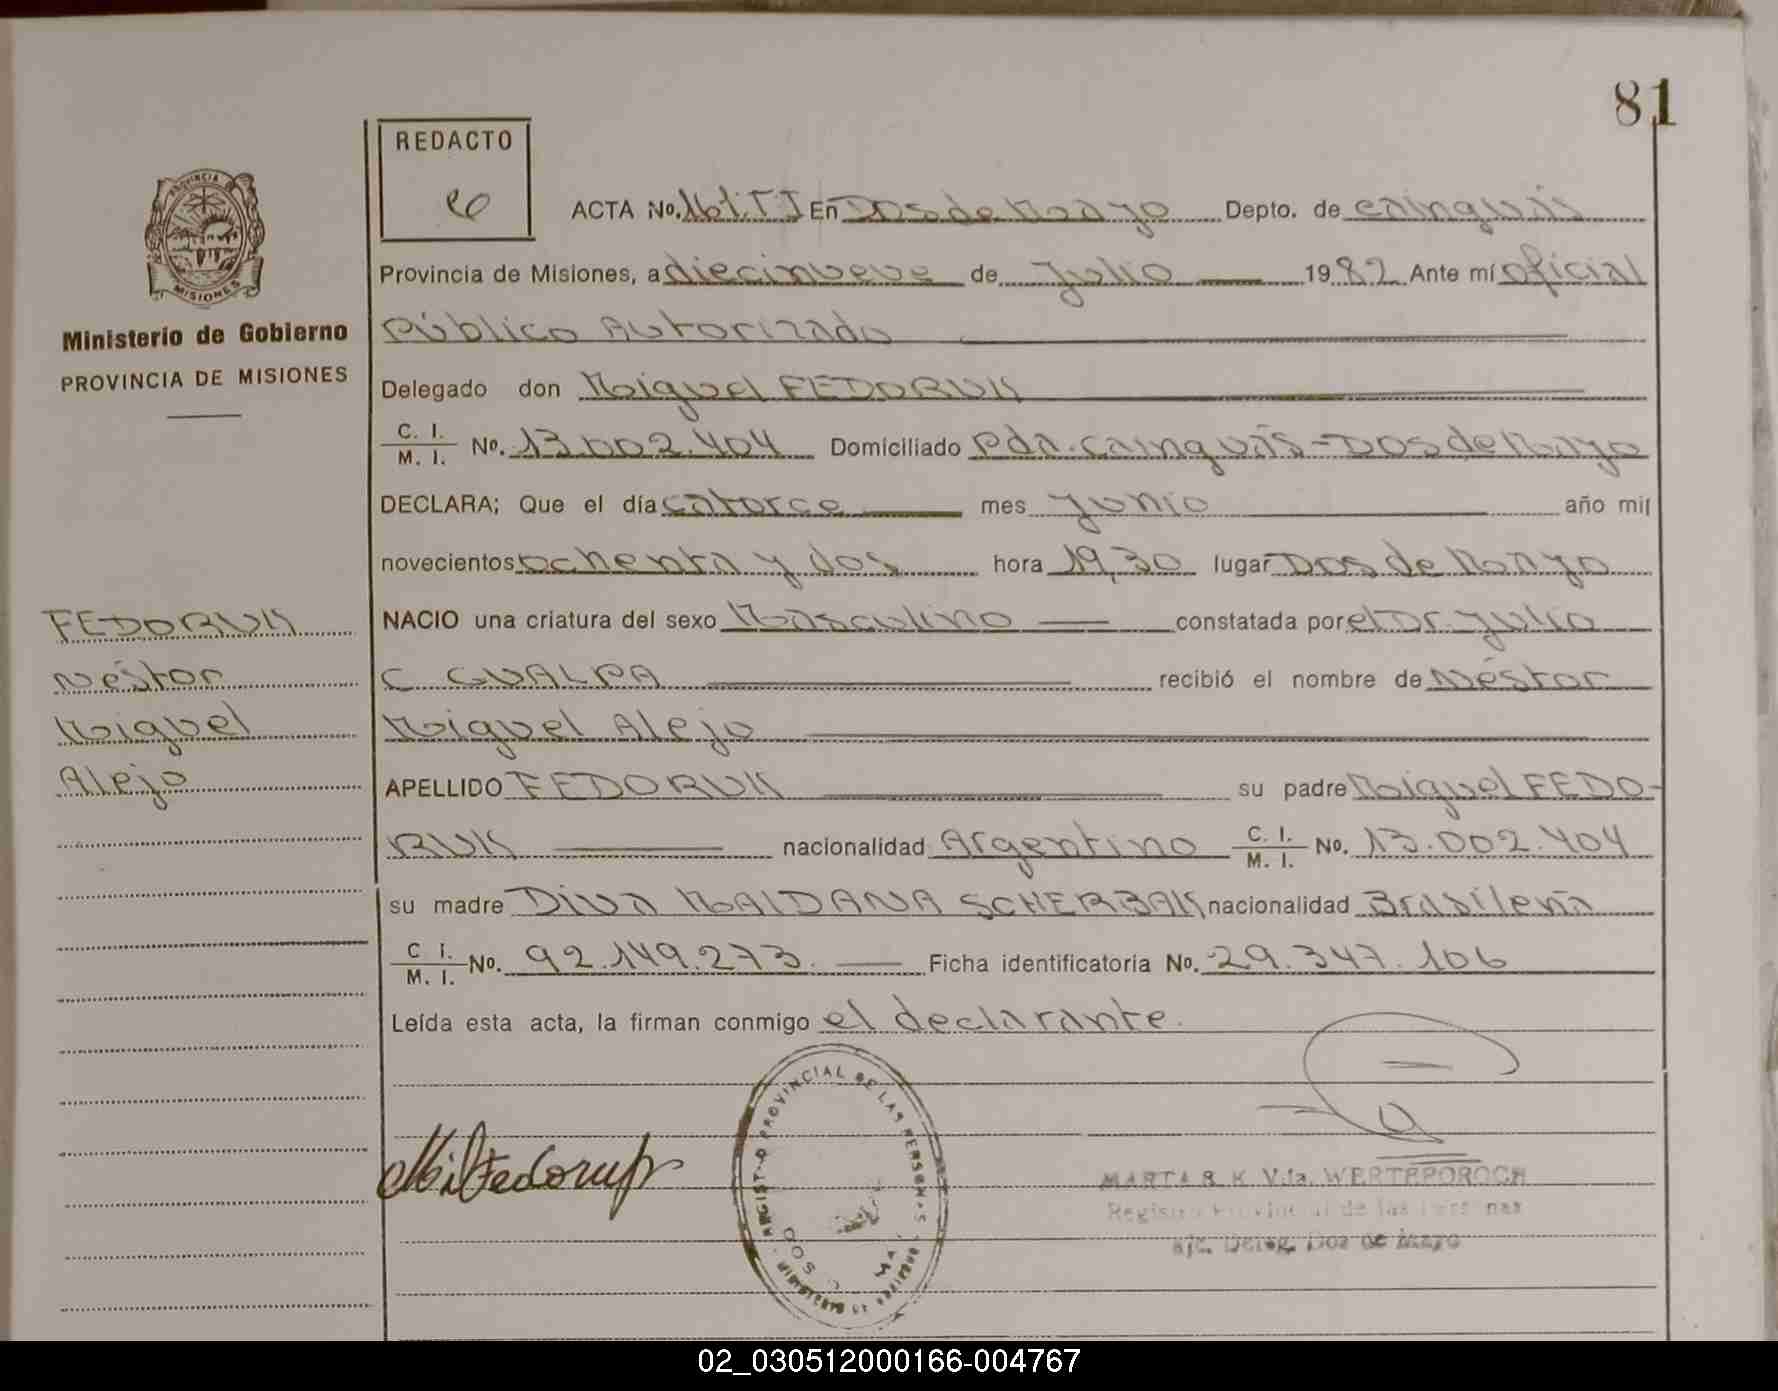 81
REDACTO
ACTA No. 161. TI En Dos de Mayo Depto. de Cainguás
Provincia de Misiones, a diecinueve de Julio 1982 Ante mí oficial
Público Autorizado
Delegado don Miguel FEDORUK
C. I.
M. I. No. 13.002.404 Domiciliado Pda. Cainguás - Dos de Mayo
DECLARA; Que el día catorce mes Junio año mil
novecientos ochenta y dos hora 19,30 lugar Dos de Mayo
NACIO una criatura del sexo Masculino constatada por el Dr. Julio
C GUALPA recibió el nombre de Néstor
Miguel Alejo
APELLIDO FEDORUK su padre Miguel FEDO-
RUK nacionalidad Argentino C. I. M. I. No. 13.002.404
su madre Diva MALDANA SCHERBAK nacionalidad Brasileña
C I. M. I. No. 92.149.273. Ficha identificatoria No. 29.347.106
Leída esta acta, la firman conmigo el declarante.
PROVINCIA
MISIONES
Ministerio de Gobierno
PROVINCIA DE MISIONES
FEDORUK
Néstor
Miguel
Alejo
PROVINCIAL DE LAS PERSONAS
MARTA R. K. Vda. WERTEPOROCH
Registro Provincial de las Personas
Dos de Mayo
02_030512000166-004767